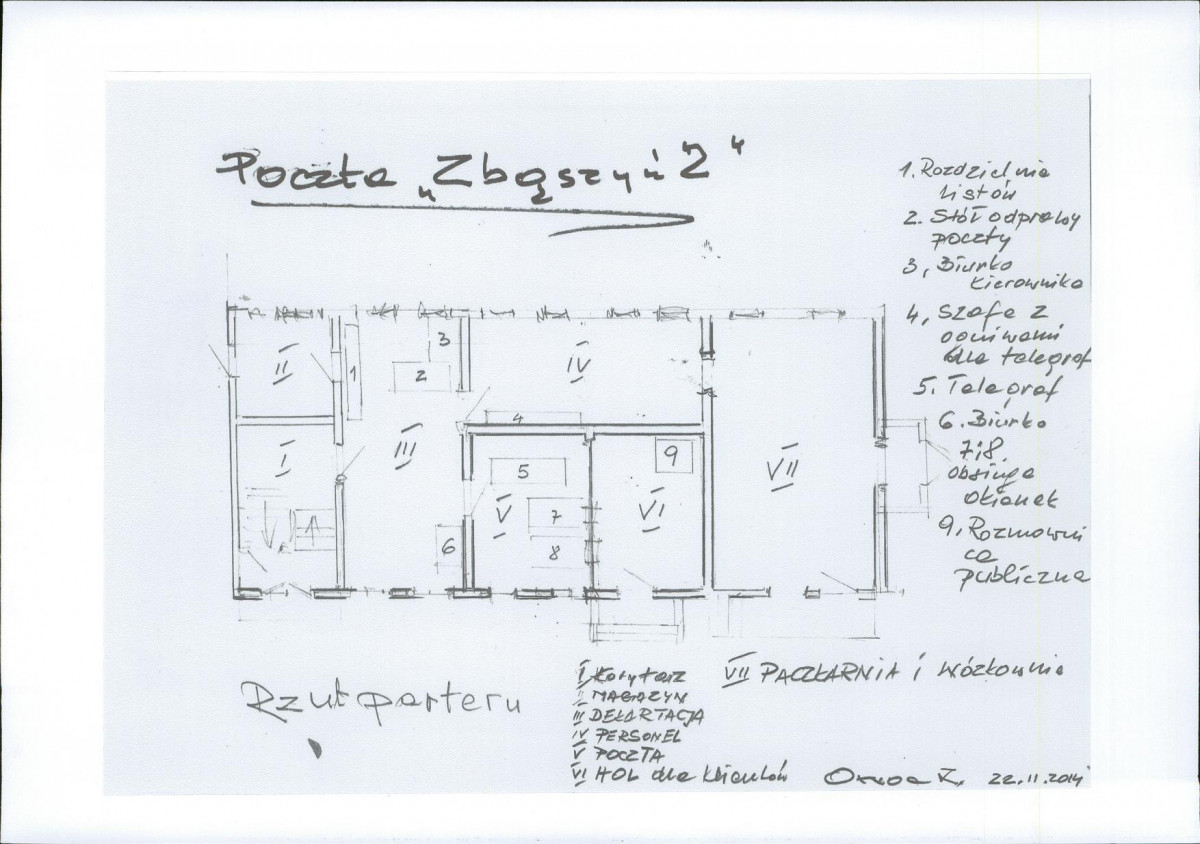 Poczta „Zbąszyń 2"
1. Rozdzielnia
listów
2. Stół odprawy
poczty
3, Biurko
kierownika
4, Szafa z
ogniwami
dla telegraf
5. Telegraf
6. Biurko
7i8.
obsługa
okienek
9, Rozmowni
ca
publiczna
II
1
2
3
IV
4
I
III
5
V
7
8
6
9
VI
VII
Rzut parteru
I Korytarz
II MAGAZYN
III DEKARTACJA
IV PERSONEL
V POCZTA
VI HOL dla klientów
VII PACZKARNIA i wózkownia
22.11.2014